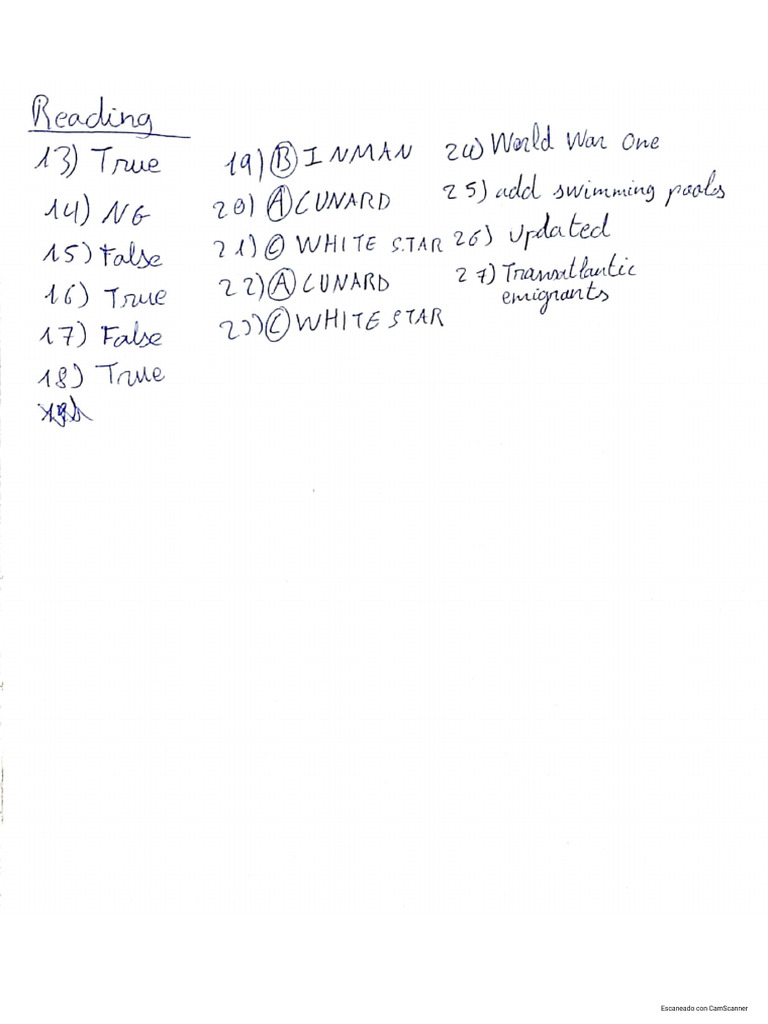 Reading
13) True
14) NG
15) False
16) True
17) False
18) True
19) B INMAN
20) A CUNARD
21) C WHITE STAR
22) A CUNARD
23) C WHITE STAR
24) World War One
25) add swimming pools
26) Updated
27) Transatlantic
emigrants
Escaneado con CamScanner